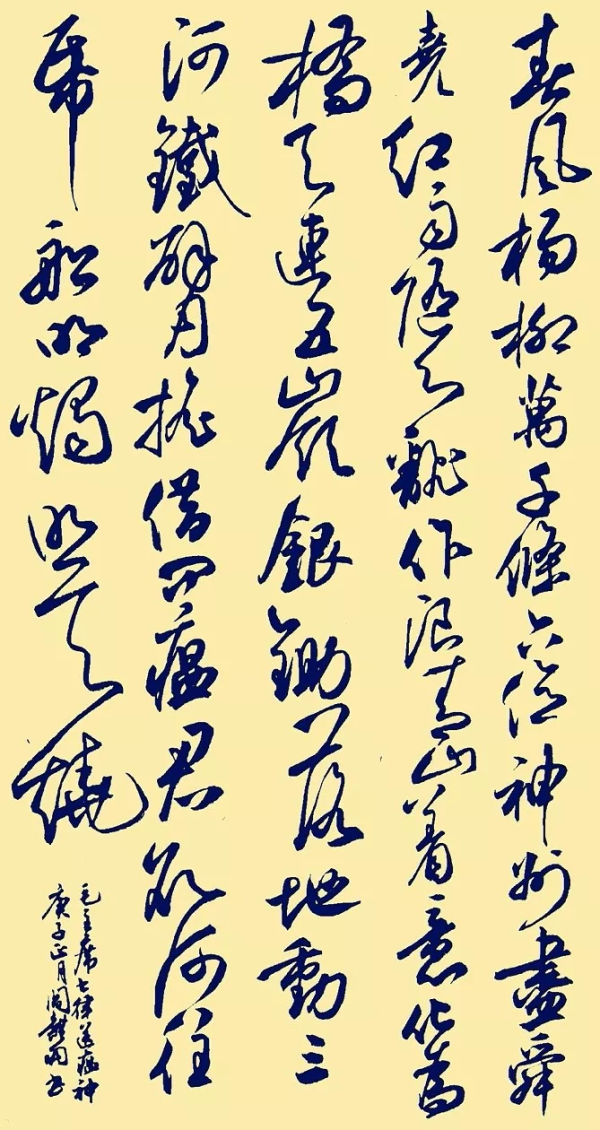 春風楊柳萬千條六億神州盡舜
堯紅雨隨心飜作浪青山着意化為
橋天連五嶺銀鋤落地動三
河鐵臂搖借問瘟君欲何往
帋船明燭照天燒
毛主席七律送瘟神
庚子正月書